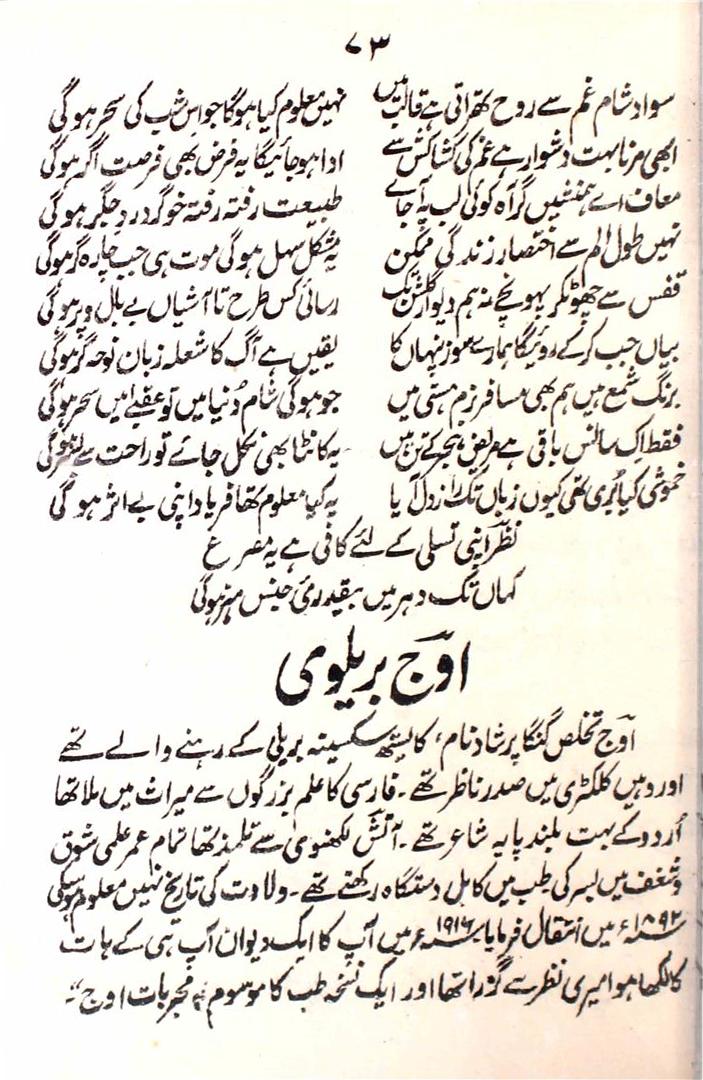 ۷۳
سواد شام غم سے روح تھراتی ہے قالب میں نہیں معلوم کیا ہوگا جو اس شب کی سحر ہوگی
ابھی مرنا بہت دشوار ہے غم کی کشاکش سے ادا ہو جائیگا یہ فرض بھی فرصت اگر ہوگی
معاف اے ہمنشیں گر آہ کوئی لب پہ آجائے طبیعت رفتہ رفتہ خوگر درد جگر ہوگی
نہیں طول الم سے اختصار زندگی ممکن یہ مشکل سہل ہوگی موت ہی جب چارہ گر ہوگی
قفس سے چھوٹکر پہونچے نہ ہم دیوار گلشن تک رسائی کس طرح تا آشیاں بے بال و پر ہوگی
بیاں جب کرکے روئیگا ہمارے سوز پنہاں کا یقیں ہے آگ کا شعلہ زبان نوحہ گر ہوگی
برنگ شمع ہیں ہم بھی مسافر بزم ہستی میں جو ہوگی شام دُنیا میں تو عقبےٰ میں سحر ہوگی
فقط اک سانس باقی ہے مریض ہجر کے تن میں یہ کانٹا بھی نکل جائے تو راحت سے بسر ہوگی
خموشی کیا بُری تھی کیوں زباں تک راز دل آیا یہ کیا معلوم تھا فریاد اپنی بے اثر ہوگی
نظرؔ اپنی تسلی کے لئے کافی ہے یہ مصرع
کہاں تک دہر میں بیقدریٔ جنس ہنر ہوگی
اوجؔ بریلوی
اوجؔ تخلص گنگا پرشاد نام، کایستھ سکسینہ بریلی کے رہنے والے تھے
اور وہیں کلکٹری میں صدر ناظر تھے۔ فارسی کا علم بزرگوں سے میراث میں ملا تھا
اُردو کے بہت بلند پایہ شاعر تھے۔ آتشؔ لکھنوی سے تلمذ تھا تمام عمر علمی شوق
و شغف میں بسر کی طب میں کامل دستگاہ رکھتے تھے۔ ولادت کی تاریخ نہیں معلوم ہوسکی
۱۸۹۲ء میں انتقال فرمایا ۱۹۱۶ء میں آپ کا ایک دیوان آپ ہی کے ہات
کا لکھا ہوا میری نظر سے گزرا تھا اور ایک نسخہ طب کا موسوم بہ مجربات اوج"۔